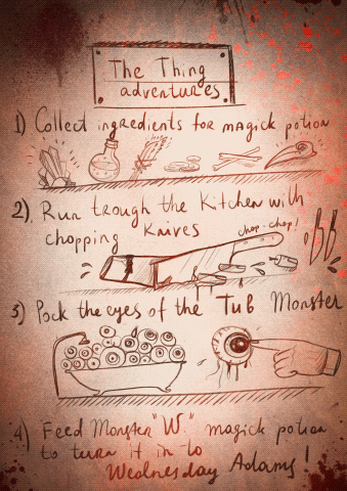 The Thing
adventures
1) Collect ingredients for magick potion
2) Run trough the Kitchen with
chopping knives
chop-chop!
3) Pock the eyes of the Tub Monster
4) Feed Monster "W." magick potion
to turn it in to
Wednesday Adams!